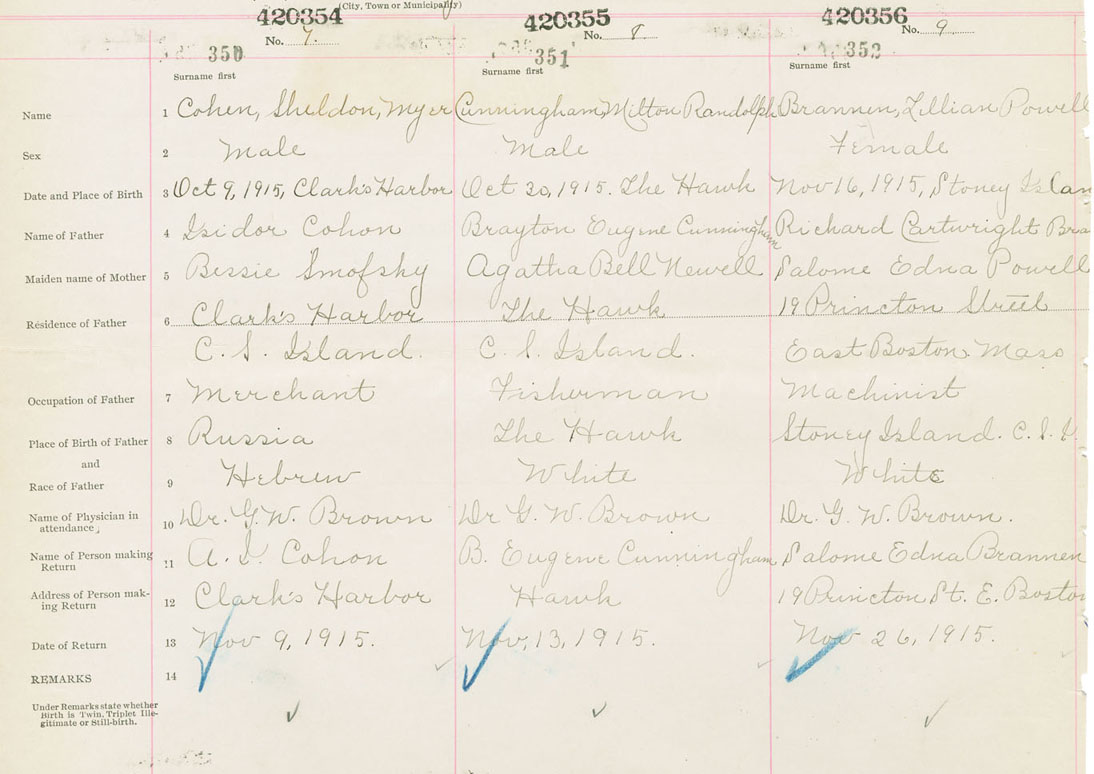 (City, Town or Municipality)
420354 420355 420356
No. 7. No. 8. No. 9
350 351 352
Surname first Surname first Surname first
Name 1 Cohen, Sheldon, Myer Cunningham, Milton Randolph Brannen, Lillian Powell
Sex 2 Male Male Female
Date and Place of Birth 3 Oct 9, 1915, Clark's Harbor Oct 20, 1915. The Hawk Nov 16, 1915, Stoney Islan
Name of Father 4 Isidor Cohon Brayton Eugene Cunningham Richard Cartwright Bra
Maiden name of Mother 5 Bessie Smofsky Agatha Bell Newell Salome Edna Powell
Residence of Father 6 Clark's Harbor The Hawk 19 Princton Street
C. S. Island. C. S. Island. East Boston. Mass
Occupation of Father 7 Merchant Fisherman Machinist
Place of Birth of Father 8 Russia The Hawk Stoney Island. C. S. I.
and
Race of Father 9 Hebrew White White
Name of Physician in attendance, 10 Dr. G. W. Brown Dr G. W. Brown Dr. G. W. Brown.
Name of Person making Return 11 A. I. Cohon B. Eugene Cunningham Salome Edna Brannen
Address of Person mak-ing Return 12 Clark's Harbor Hawk 19 Princton St. E. Boston
Date of Return 13 Nov 9, 1915. Nov, 13, 1915. Nov 26, 1915.
REMARKS 14
Under Remarks state whether
Birth is Twin, Triplet Ille-
gitimate or Still-birth.